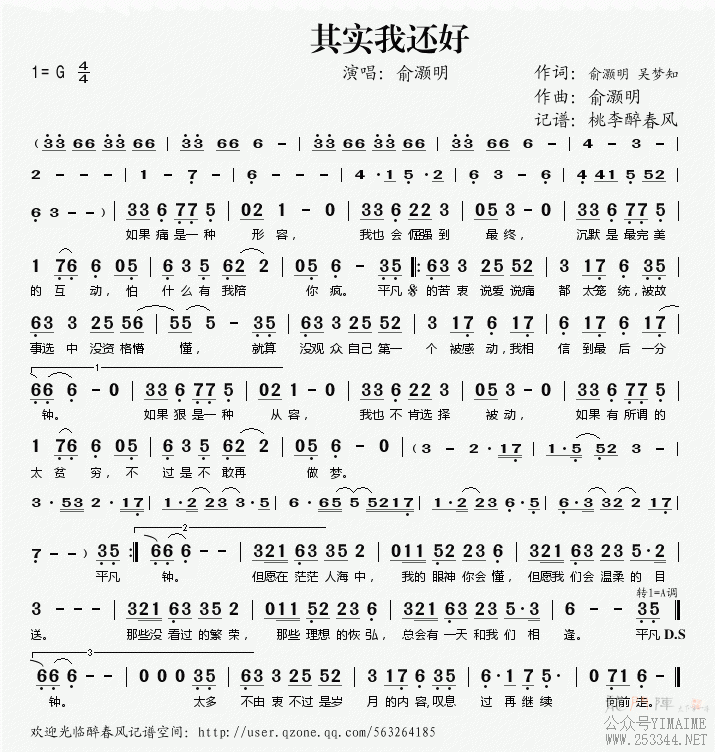 其实我还好
1=G 4/4 演唱：俞灏明 作词：俞灏明 吴梦知
作曲：俞灏明
记谱：桃李醉春风
( 33 66 33 66 | 33 66 6 - | 33 66 33 66 | 33 66 6 - | 4 - 3 - |
2 - - - | 1 - 7 - | 6 - - - | 4 · 1 5 · 2 | 6 3 - 6 | 4 441 5 52 |
6 3 - - ) | 33 6 77 5 | 02 1 - 0 | 33 6 22 3 | 05 3 - 0 | 33 6 77 5 |
如果痛是一种 形容， 我也会倔强到 最终， 沉默是最完美
1 76 6 05 | 63 5 62 2 | 05 6 - 35 ‖: 63 3 25 52 | 3 17 6 35 |
的互动，怕 什么有我陪 你疯。平凡 的苦衷说爱说痛 都太笼统，被故
63 3 25 56 | 55 5 - 35 | 63 3 25 52 | 3 17 6 17 | 6 17 6 17 |
事选中没资格懵 懂，就算 没观众自己第一 个被感动，我相 信到最后一分
1
66 6 - 0 | 33 6 77 5 | 02 1 - 0 | 33 6 22 3 | 05 3 - 0 | 33 6 77 5 |
钟。 如果狠是一种 从容， 我也不肯选择 被动， 如果有所谓的
1 76 6 05 | 63 5 62 2 | 05 6 - 0 | (3 - 2 · 17 | 1 · 5 52 3 - |
太贫穷，不 过是不敢再 做梦。
3 · 53 2 · 17 | 1 · 2 23 3 · 5 | 6 · 65 55 5217 | 1 · 2 23 6 · 5 | 6 · 3 32 2 17 |
2
7 - - ) 35 :‖ 66 6 - - | 321 63 35 2 | 011 52 23 6 | 321 63 23 5 · 2 |
平凡 钟。 但愿在茫茫人海中， 我的眼神你会懂， 但愿我们会温柔的目
转1=A调
3 - - - | 321 63 35 2 | 011 52 23 6 | 321 63 23 5 · 3 | 6 - - 35 ‖
送。 那些没看过的繁荣， 那些理想的恢弘， 总会有一天和我们相 逢。 平凡 D.S
3
66 6 - - | 0 0 0 35 | 63 3 25 52 | 3 17 6 35 | 6 · 1 7 5 · | 0 71 6 -
钟。 太多 不由衷不过是岁 月的内容，叹息 过再继续 向前走。
欢迎光临醉春风记谱空间：http://user.qzone.qq.com/563264185
公众号YIMAIME
www.253344.NET